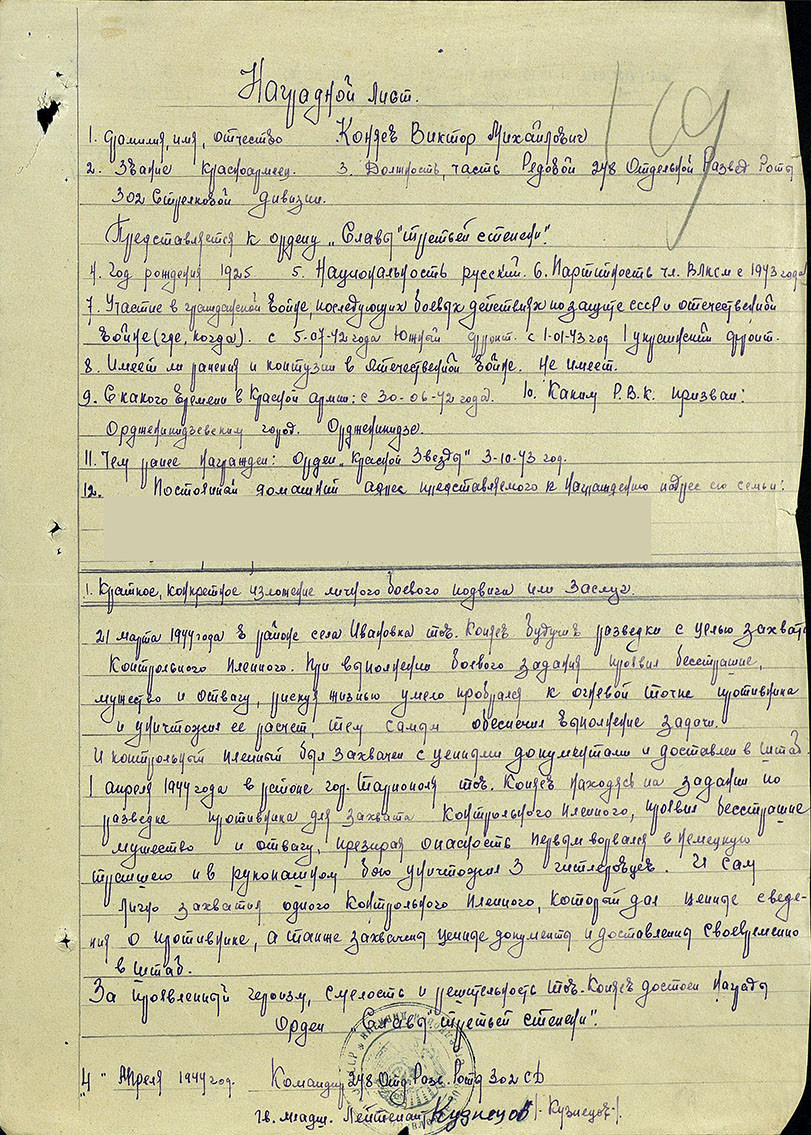 Наградной лист.
169
1. Фамилия, имя, отчество Коняев Виктор Михайлович
2. Звание красноармеец. 3. Должность, часть Рядовой 248 Отдельной Развед Роты
302 Стрелковой дивизии.
Представляется к ордену „Славы" третьей степени".
4. Год рождения 1925 5. Национальность русский. 6. Партийность чл. ВЛКСМ с 1943 года
7. Участие в гражданской войне, последующих боевых действиях по защите СССР и отечественной
войне (где, когда). с 5-07-42 года Южный фронт. с 1-01-43 год 1 украинский фронт.
8. Имеет ли ранения и контузии в отечественной войне. Не имеет.
9. С какого времени в Красной армии: с 30-06-42 года. 10. Каким Р.В.К. призван:
Орджоникидзевским город. Орджоникидзе.
11. Чем ранее награжден: орден „Красной Звезды" 3-10-43 год.
12. Постоянный домашний адрес представляемого к награждению и адрес его семьи:
1. Краткое, конкретное изложение личного боевого подвига или заслуг.
21 марта 1944 года в районе села Ивановка тов. Коняев будучи в разведки с целью захвата
контрольного пленного. При выполнении боевого задания проявил бесстрашие,
мужество и отвагу, рискуя жизнью умело пробрался к огневой точке противника
и уничтожил ее расчет, тем самым обеспечил выполнение задачи.
И контрольный пленный был захвачен с ценными документами и доставлен в штаб.
1 апреля 1944 года в районе гор. Тарнополя тов. Коняев находясь на задании по
разведке противника для захвата контрольного пленного, проявил бесстрашие
мужество и отвагу, презирая опасность первым ворвался в немецкую
траншею и в рукопашном бою уничтожил 3 гитлеровцев. И сам
лично захватил одного контрольного пленного, который дал ценные сведе-
ния о противнике, а также захвачены ценные документы и доставлены своевременно
в штаб.
За проявленный героизм, смелость и решительность тов. Коняев достоен награды
Орден „Славы" третьей степени".
„4" Апреля 1944 год. Командир 248 Отд. Разв. Роты 302 СД
Гв. младш. Лейтенант Кузнецов /-Кузнецов-/.